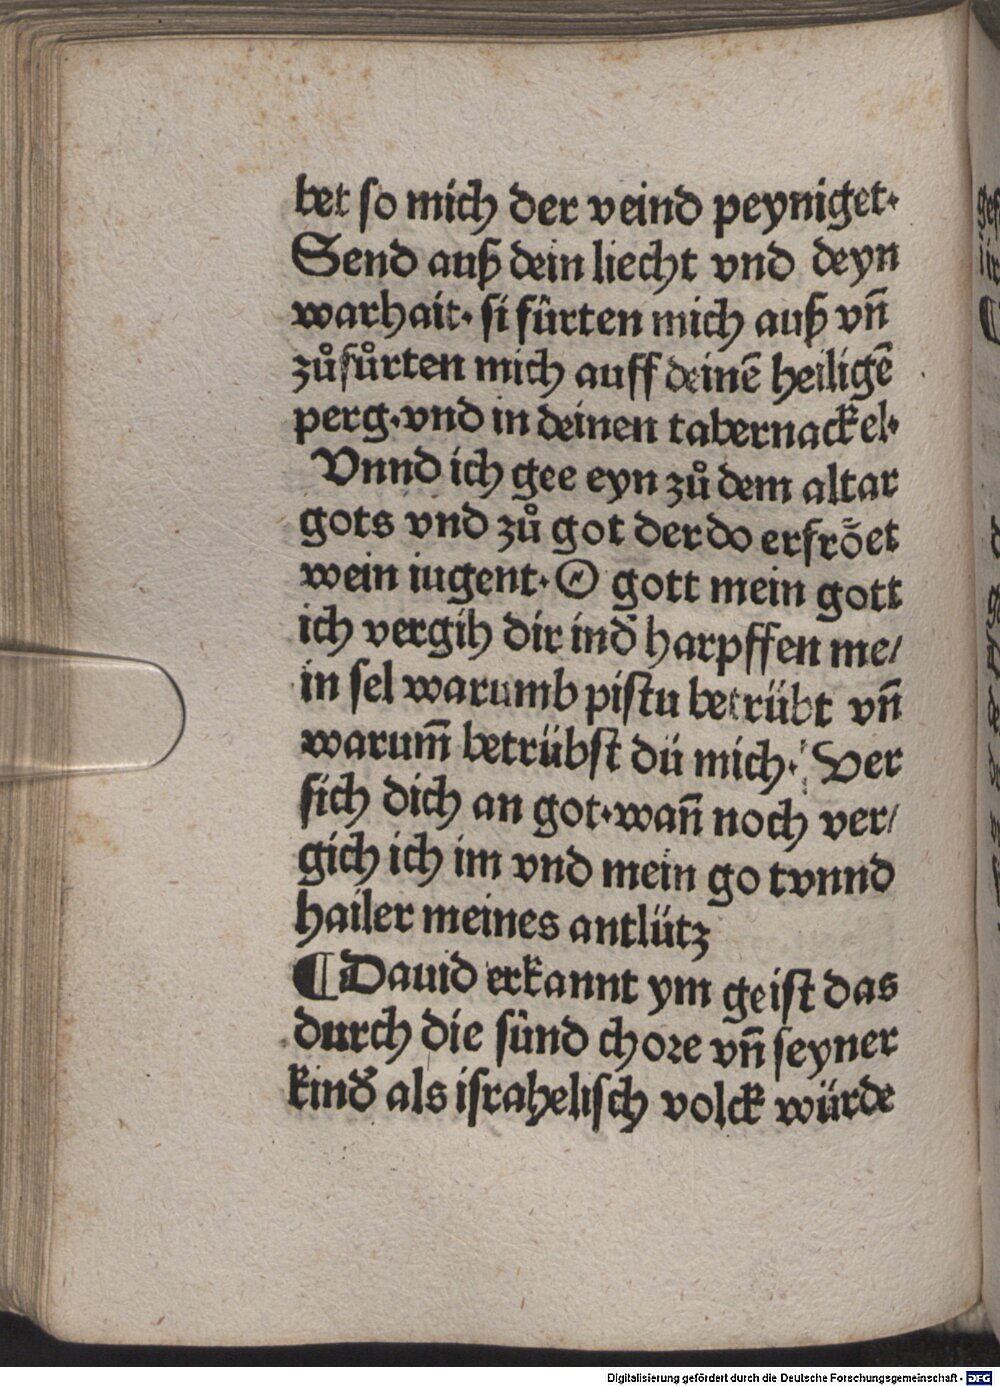 bet so mich der veind peyniget·
Send auß dein liecht vnd deyn
warhait· si fürten mich auß vn̄
zůfůrten mich auff deinē heiligē
perg·vnd in deinen tabernackel·
Vnnd ich gee eyn zů dem altar
gots vnd zů got der do erfrȫet
wein iugent· O gott mein gott
ich vergih dir ind̕ harpffen me/
in sel warumb pistu betrübt vn̄
warum̄ betrübst dü mich· Ver
sich dich an got·wan̄ noch ver/
gich ich im vnd mein go tvnnd
hailer meines antlütz
¶ Dauid erkannt ym geist das
durch die sünd chore vn̄ seyner
kind̕ als israhelisch volck würde
Digitalisierung gefördert durch die Deutsche Forschungsgemeinschaft - DFG